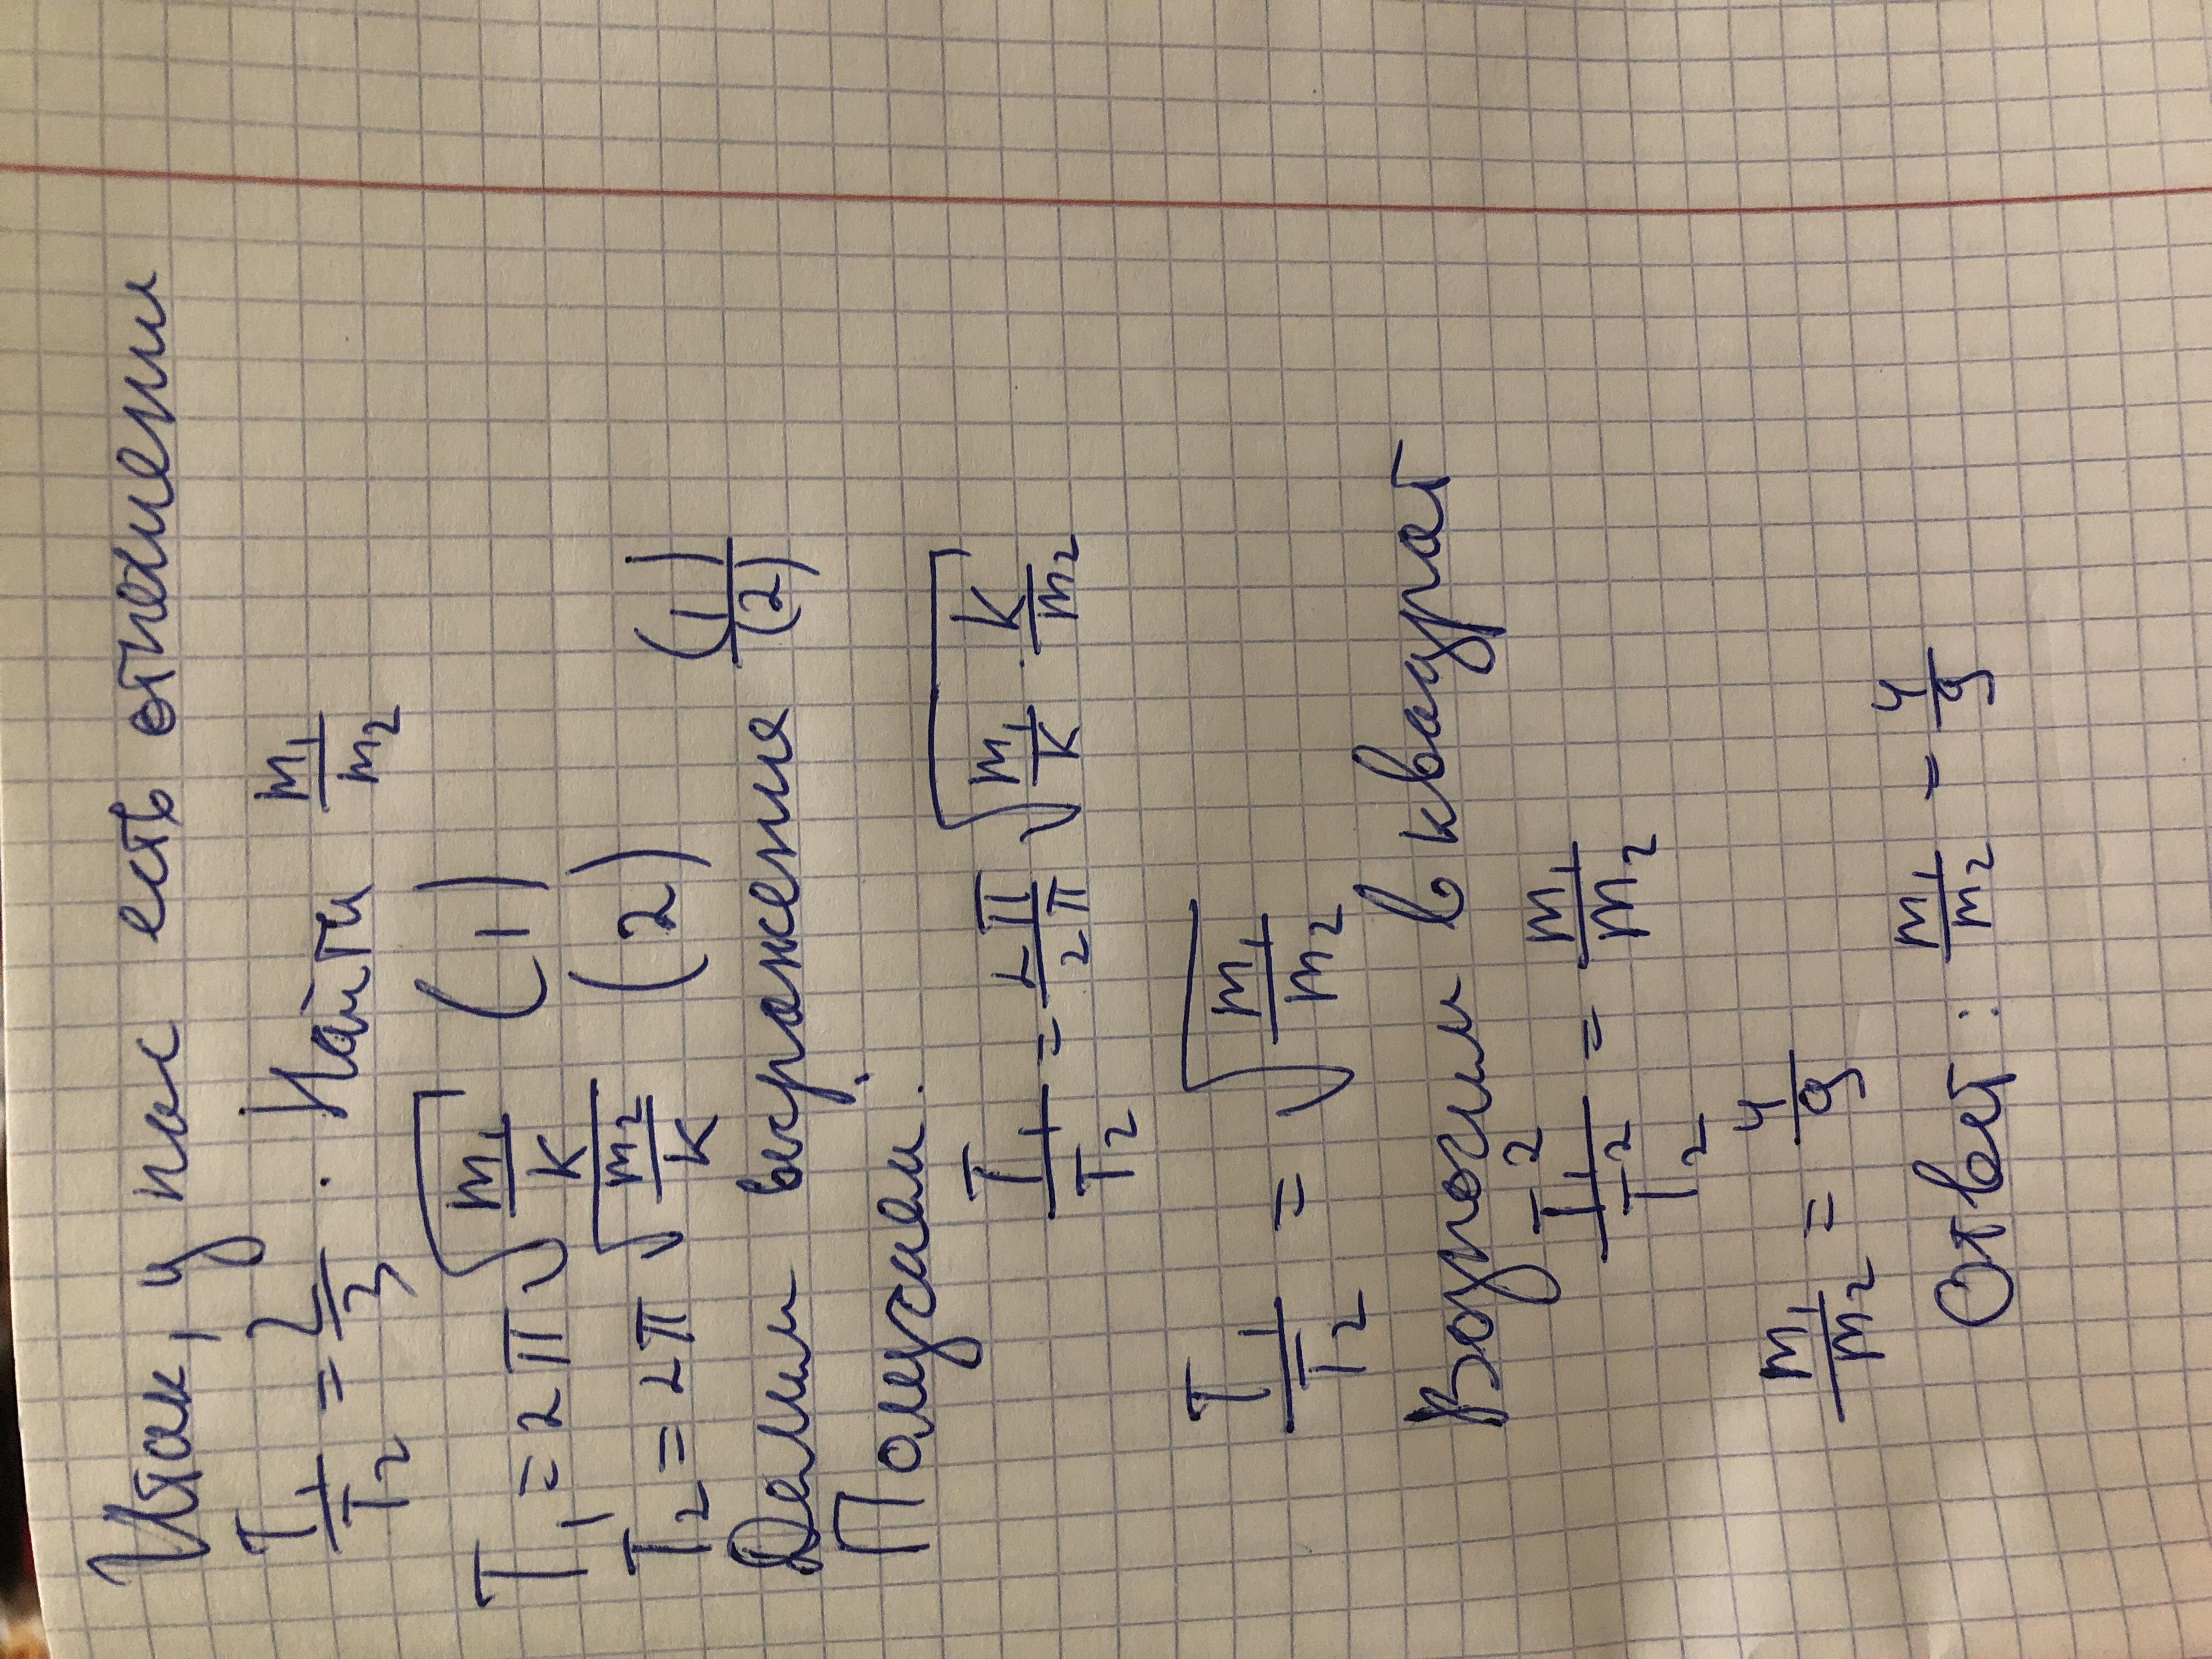 Итак, у нас есть отношении
T₁/T₂ = 2/3 . Найти m₁/m₂
T₁ = 2π √(m₁/k) (1)
T₂ = 2π √(m₂/k) (2)
Делим выражение (1)/(2)
Получаем:
T₁/T₂ = 2π/2π √(m₁/k · k/m₂)
T₁/T₂ = √(m₁/m₂)
Возносим в квадрат
T₁²/T₂² = m₁/m₂
m₁/m₂ = 4/9
Ответ: m₁/m₂ = 4/9